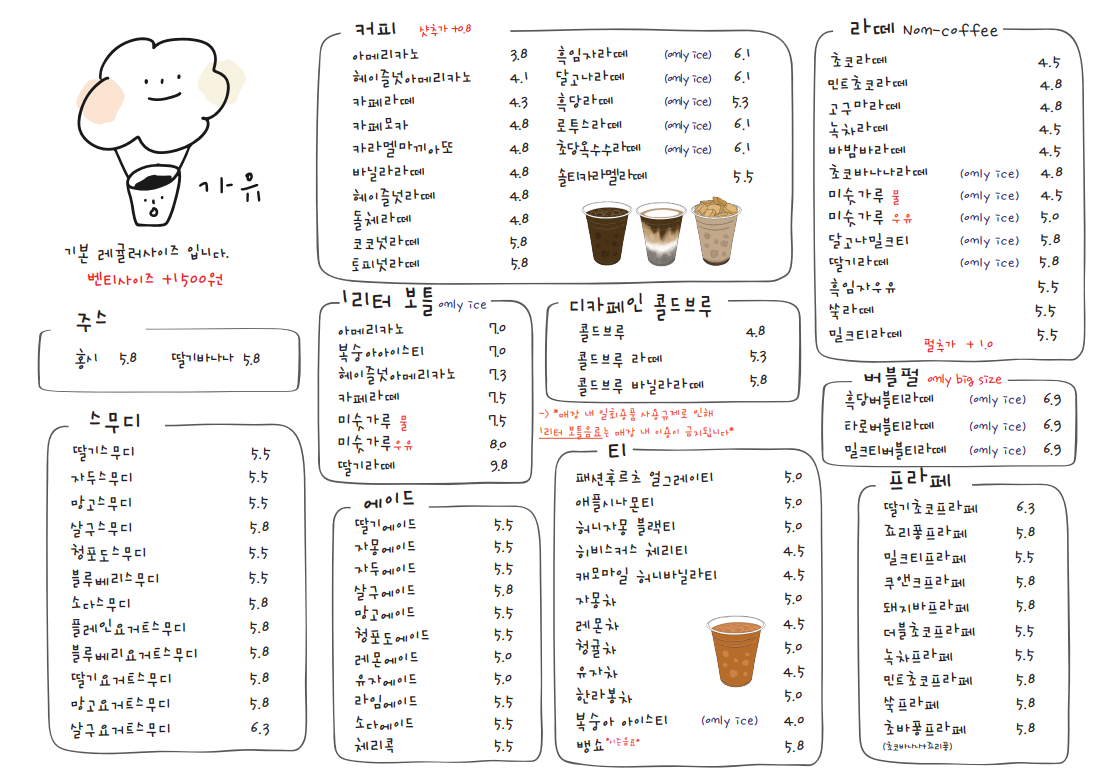 가-유
기본 레귤러사이즈 입니다.
벤티사이즈 +1500원
주스
홍시 5.8 딸기바나나 5.8
스무디
딸기스무디 5.5
자두스무디 5.5
망고스무디 5.5
살구스무디 5.8
청포도스무디 5.5
블루베리스무디 5.5
소다스무디 5.8
플레인요거트스무디 5.8
블루베리요거트스무디 5.8
딸기요거트스무디 5.8
망고요거트스무디 5.8
살구요거트스무디 6.3
커피 샷추가 +0.8
아메리카노 3.8
헤이즐넛아메리카노 4.1
카페라떼 4.3
카페모카 4.8
카라멜마끼아또 4.8
바닐라라떼 4.8
헤이즐넛라떼 4.8
돌체라떼 4.8
코코넛라떼 5.8
토피넛라떼 5.8
흑임자라떼 (only ice) 6.1
달고나라떼 (only ice) 6.1
흑당라떼 (only ice) 5.3
로투스라떼 (only ice) 6.1
초당옥수수라떼 (only ice) 6.1
솔티카라멜라떼 5.5
1리터 보틀 only ice
아메리카노 7.0
복숭아아이스티 7.0
헤이즐넛아메리카노 7.3
카페라떼 7.5
미숫가루 물 7.5
미숫가루우유 8.0
딸기라떼 9.8
디카페인 콜드브루
콜드브루 4.8
콜드브루 라떼 5.3
콜드브루 바닐라라떼 5.8
-> *매장 내 일회용품 사용규제로 인해
1리터 보틀음료는 매장 내 이용이 금지됩니다*
에이드
딸기에이드 5.5
자몽에이드 5.5
자두에이드 5.5
살구에이드 5.8
망고에이드 5.5
청포도에이드 5.5
레몬에이드 5.0
유자에이드 5.0
라임에이드 5.5
소다에이드 5.5
체리콕 5.5
티
패션후르츠 얼그레이티 5.0
애플시나몬티 5.0
허니자몽 블랙티 5.0
히비스커스 체리티 4.5
캐모마일 허니바닐라티 4.5
자몽차 5.0
레몬차 4.5
청귤차 5.0
유자차 4.5
한라봉차 5.0
복숭아 아이스티 (only ice) 4.0
뱅쇼 *시즌음료* 5.8
라떼 Non-coffee
초코라떼 4.5
민트초코라떼 4.8
고구마라떼 4.8
녹차라떼 4.5
바밤바라떼 4.5
초코바나나라떼 (only ice) 4.8
미숫가루 물 (only ice) 4.5
미숫가루 우유 (only ice) 5.0
달고나밀크티 (only ice) 5.8
딸기라떼 (only ice) 5.8
흑임자우유 5.5
쑥라떼 5.5
밀크티라떼 5.5
펄추가 +1.0
버블펄 only big size
흑당버블티라떼 (only ice) 6.9
타로버블티라떼 (only ice) 6.9
밀크티버블티라떼 (only ice) 6.9
프라페
딸기초코프라페 6.3
죠리퐁프라페 5.8
밀크티프라페 5.5
쿠앤크프라페 5.8
돼지바프라페 5.8
더블초코프라페 5.5
녹차프라페 5.5
민트초코프라페 5.8
쑥프라페 5.8
초바퐁프라페 5.8
(초코바나나+죠리퐁)